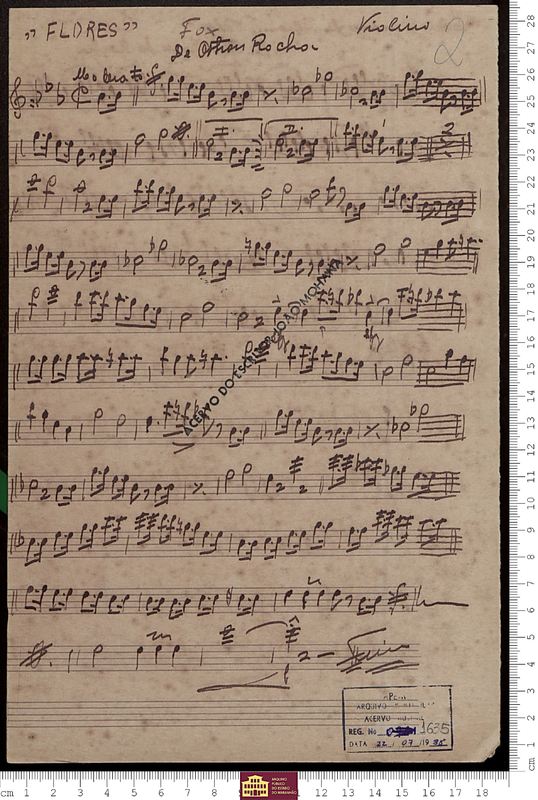 „ FLORES ” Fox Violino 2
De Othon Rocha
Moderato
1. 2.
2
ACERVO DO ESCRITOR JOÃO MOHANA
2 - Fim
APEM
ACERVO
REG. No 1635
DATA 22 / 07 /19
ARQUIVO
PÚBLICO
DO ESTADO
DO MARANHÃO
cm 1 2 3 4 5 6 7 8 11 12 13 14 15 16 17 18
cm 1 2 3 4 5 6 7 8 9 10 11 12 13 14 15 16 17 18 19 20 21 22 23 24 25 26 27 28